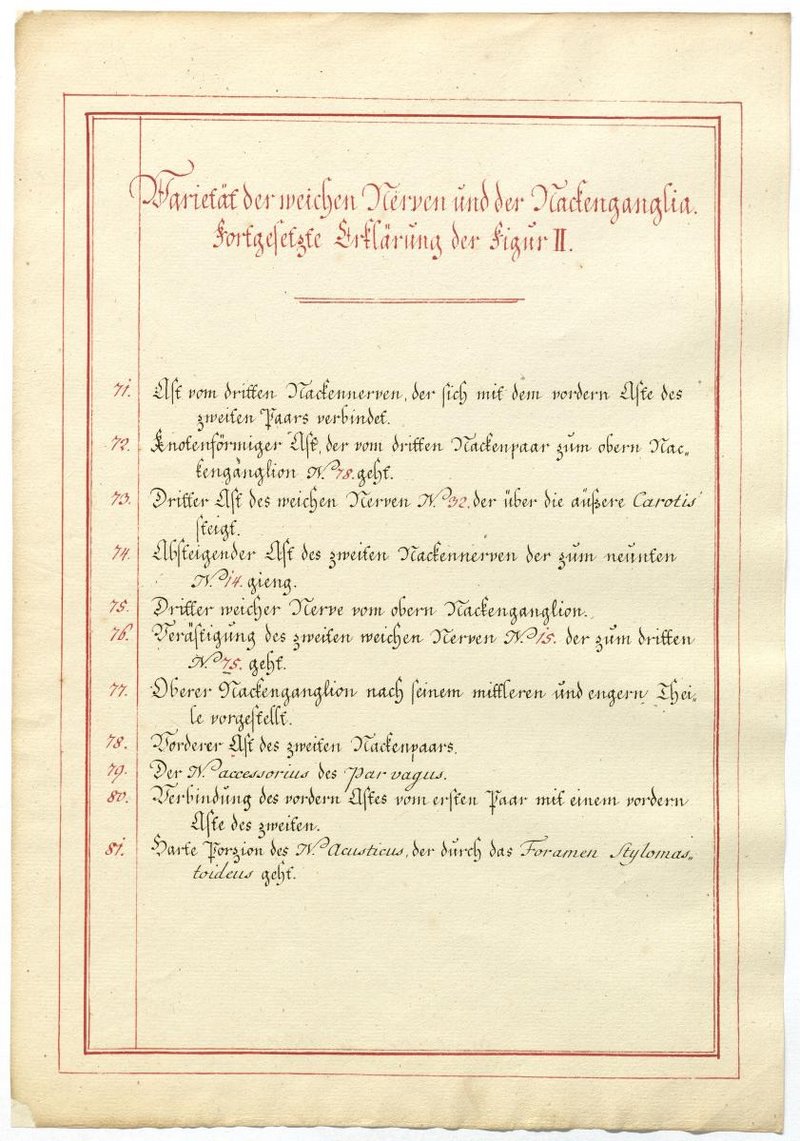 Varietät der weichen Nerven und der Nackenganglia.
Fortgesetzte Erklärung der Figur II.
71. Ast vom dritten Nackennerven, der sich mit dem vordern Aste des
zweiten Paars verbindet.
72. Knotenförmiger Ast, der vom dritten Nackenpaar zum obern Nac„
kenganglion N.º 78. geht.
73. Dritter Ast des weichen Nerven N.º 32. der über die äußere Carotis
steigt.
74. Absteigender Ast des zweiten Nackennerven der zum neunten
N.º 14. gieng.
75. Dritter weicher Nerve vom obern Nackenganglion.
76. Verästigung des zweiten weichen Nerven N.º 15. der zum dritten
N.º 75. geht.
77. Oberer Nackenganglion nach seinem mittleren und engern Thei„
le vorgestellt.
78. Vorderer Ast des zweiten Nackenpaars.
79. Der N.º accessorius des Par vagus.
80. Verbindung des vordern Astes vom ersten Paar mit einem vordern
Aste des zweiten.
81. Harte Porzion des N.º Acusticus, der durch das Foramen Stylomas„
toideus geht.